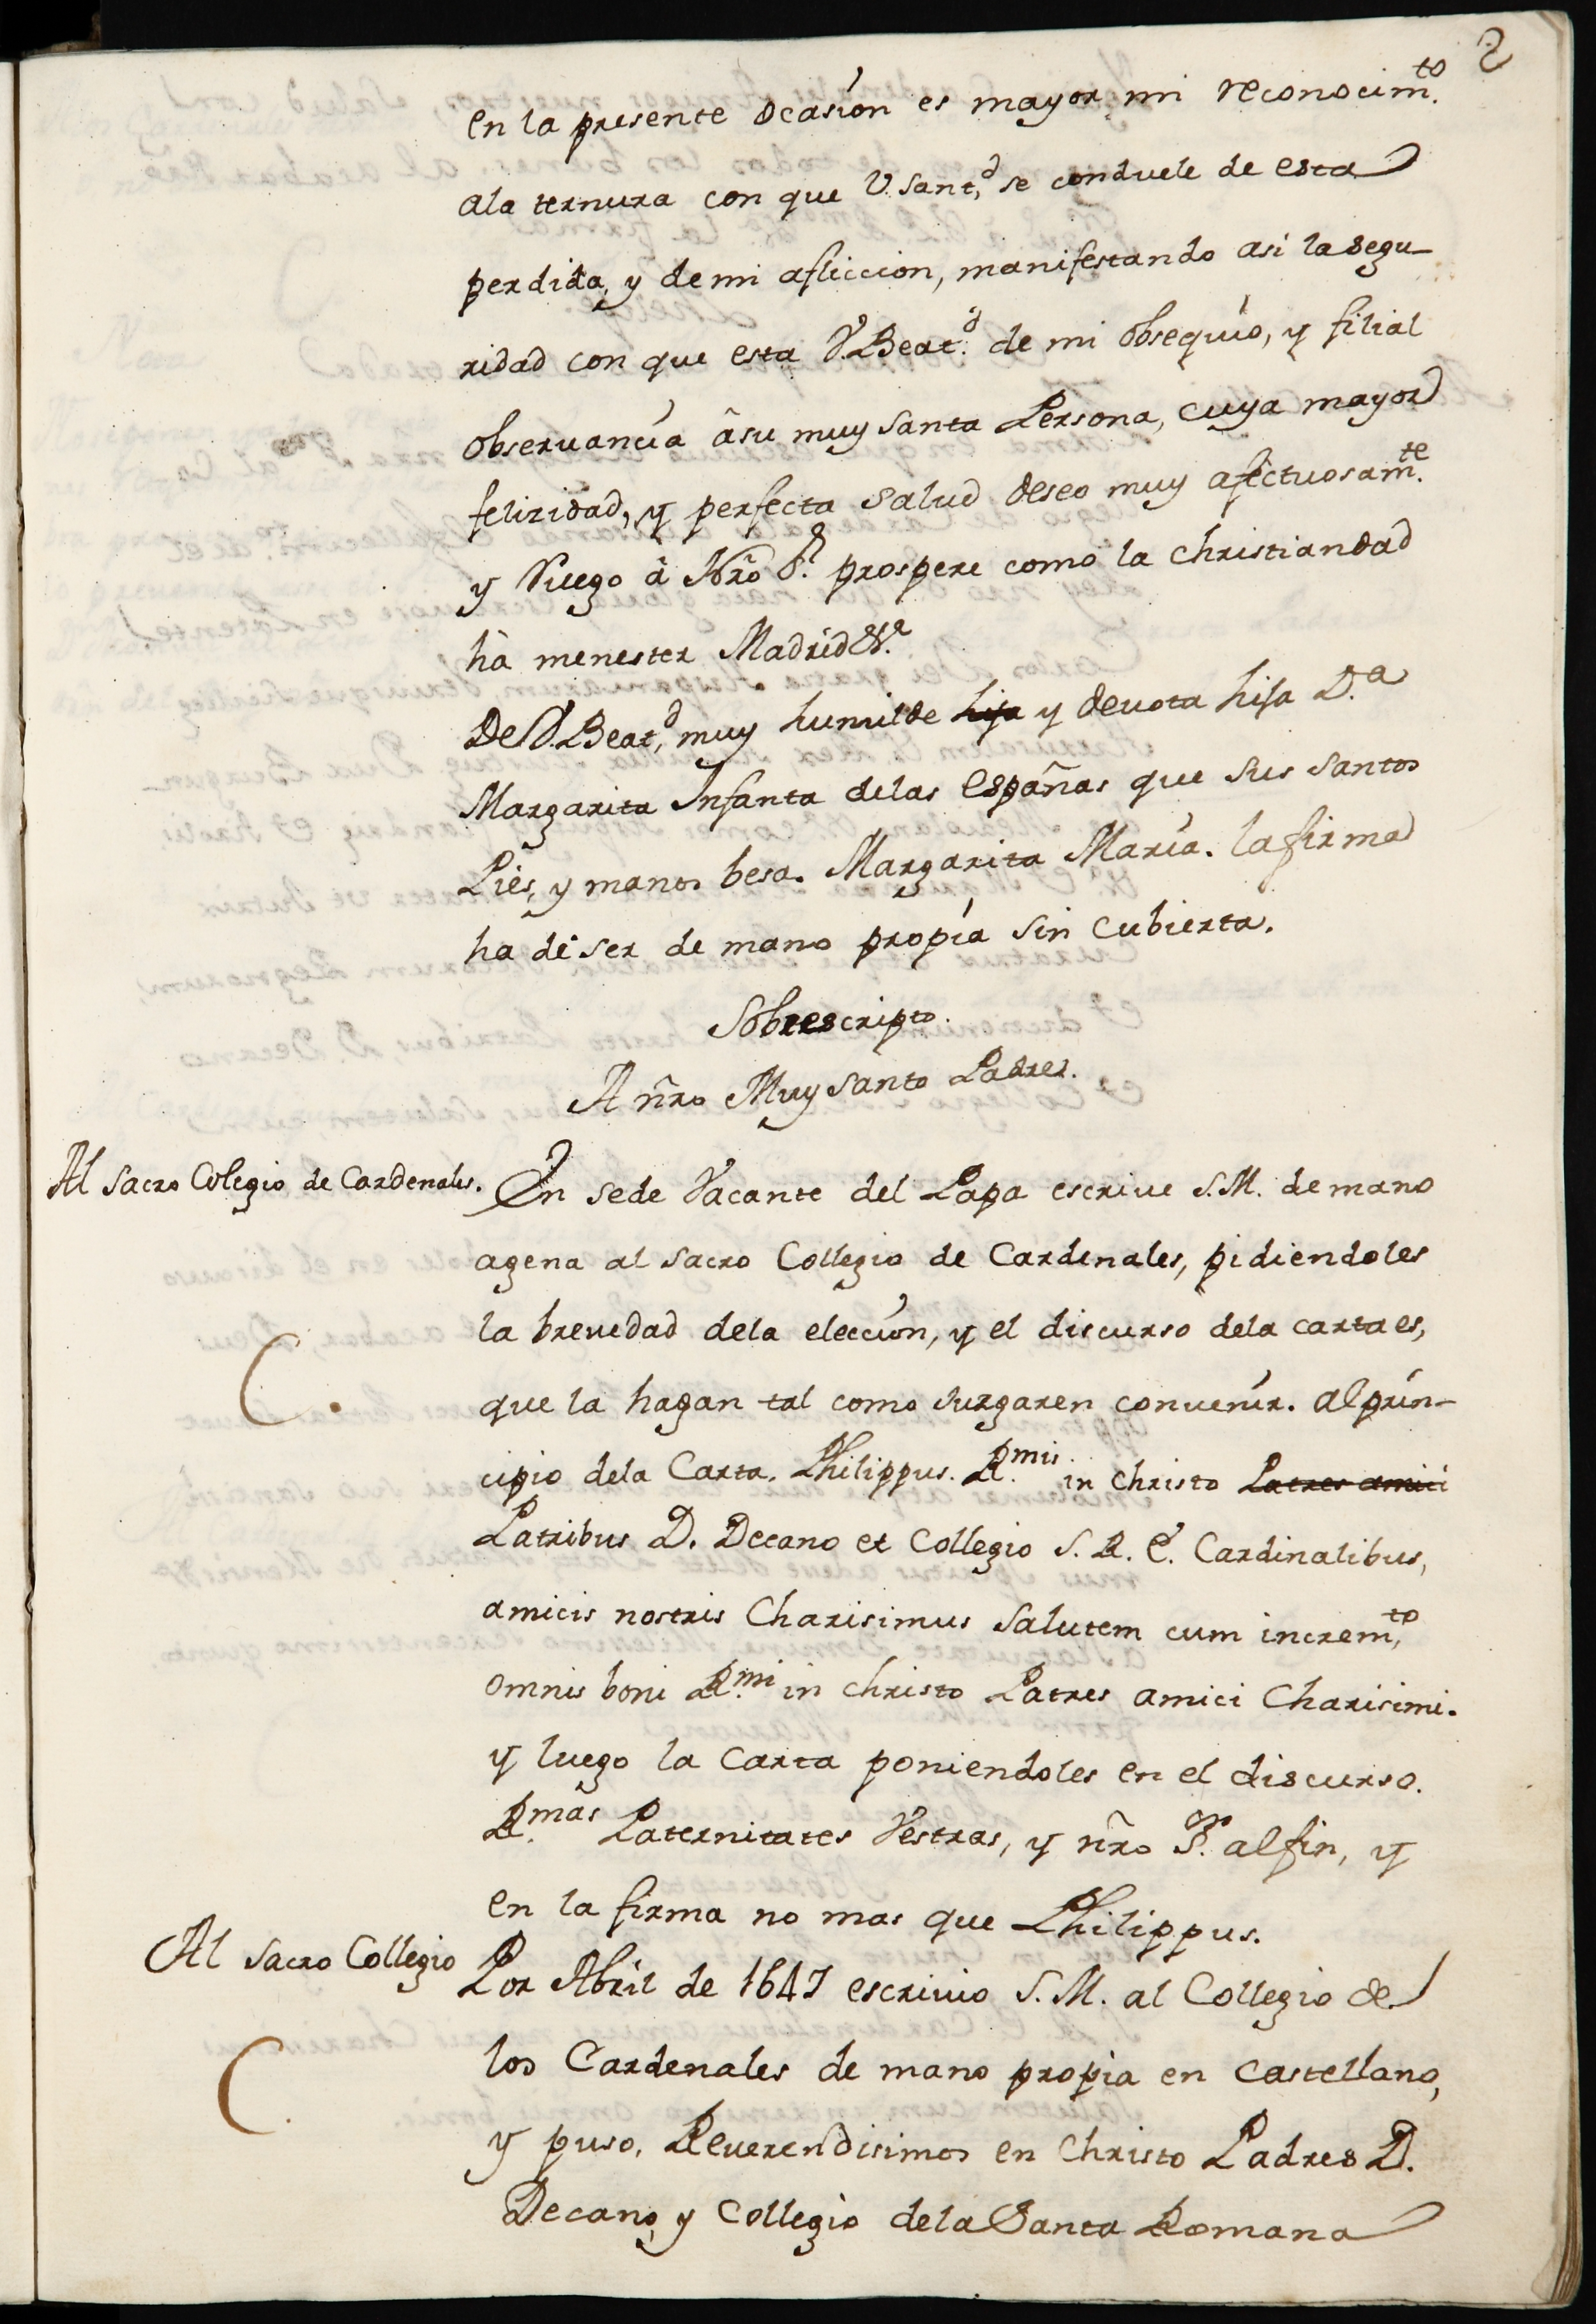 2
en la presente ocasion es mayor mi reconocim.to
ala ternura con que V. Sant.d se conduele de esta
perdida, y de mi afliccion, manifestando asi la segu-
ridad con que esta V. Beat.d de mi obsequio, y filial
observancia â su muy santa Persona, cuya mayor
felizidad, y perfecta salud deseo muy afectuosam.te
y Ruego â Nrõ S.r prospere como la christiandad
hà menester Madrid &.a
De V. Beat.d muy humilde hija y devota hija D.a
Margarita Infanta delas españas que sus santos
Pies, y manos besa. Margarita Maria. la firma
ha de ser de mano propia sin cubierta.
Sobrescripto.
A nr̃o Muy Santo Padre.
Al Sacro Colegio de Cardenales. En sede Vacante del Papa escrive S.M. de mano
agena al sacro Collegio de Cardenales, pidiendoles
la brevedad dela eleccion, y el discurso dela carta es,
C. que la hagan tal como Jurgaren convenir. al prin-
cipio dela Carta. Philippus. R.mis in christo Patres amici
Patribus D. Decano et Collegio S. R. E. Cardinalibus,
amicis nostris Charisimus salutem cum increm.to
omnis boni R.mi in christo Patres amici Charisimi.
y luego la Carta poniendoles en el discurso.
R.mas Paternitates Vestras, y nr̃o S.or al fin, y
en la firma no mas que Philippus.
Al Sacro Collegio Por Abril de 1647 escrivio S.M. al Collegio de
C. los Cardenales de mano propia en castellano,
y puso, Reverendisimos en Christo Padres D.
Decano, y Collegio dela Santa Romana